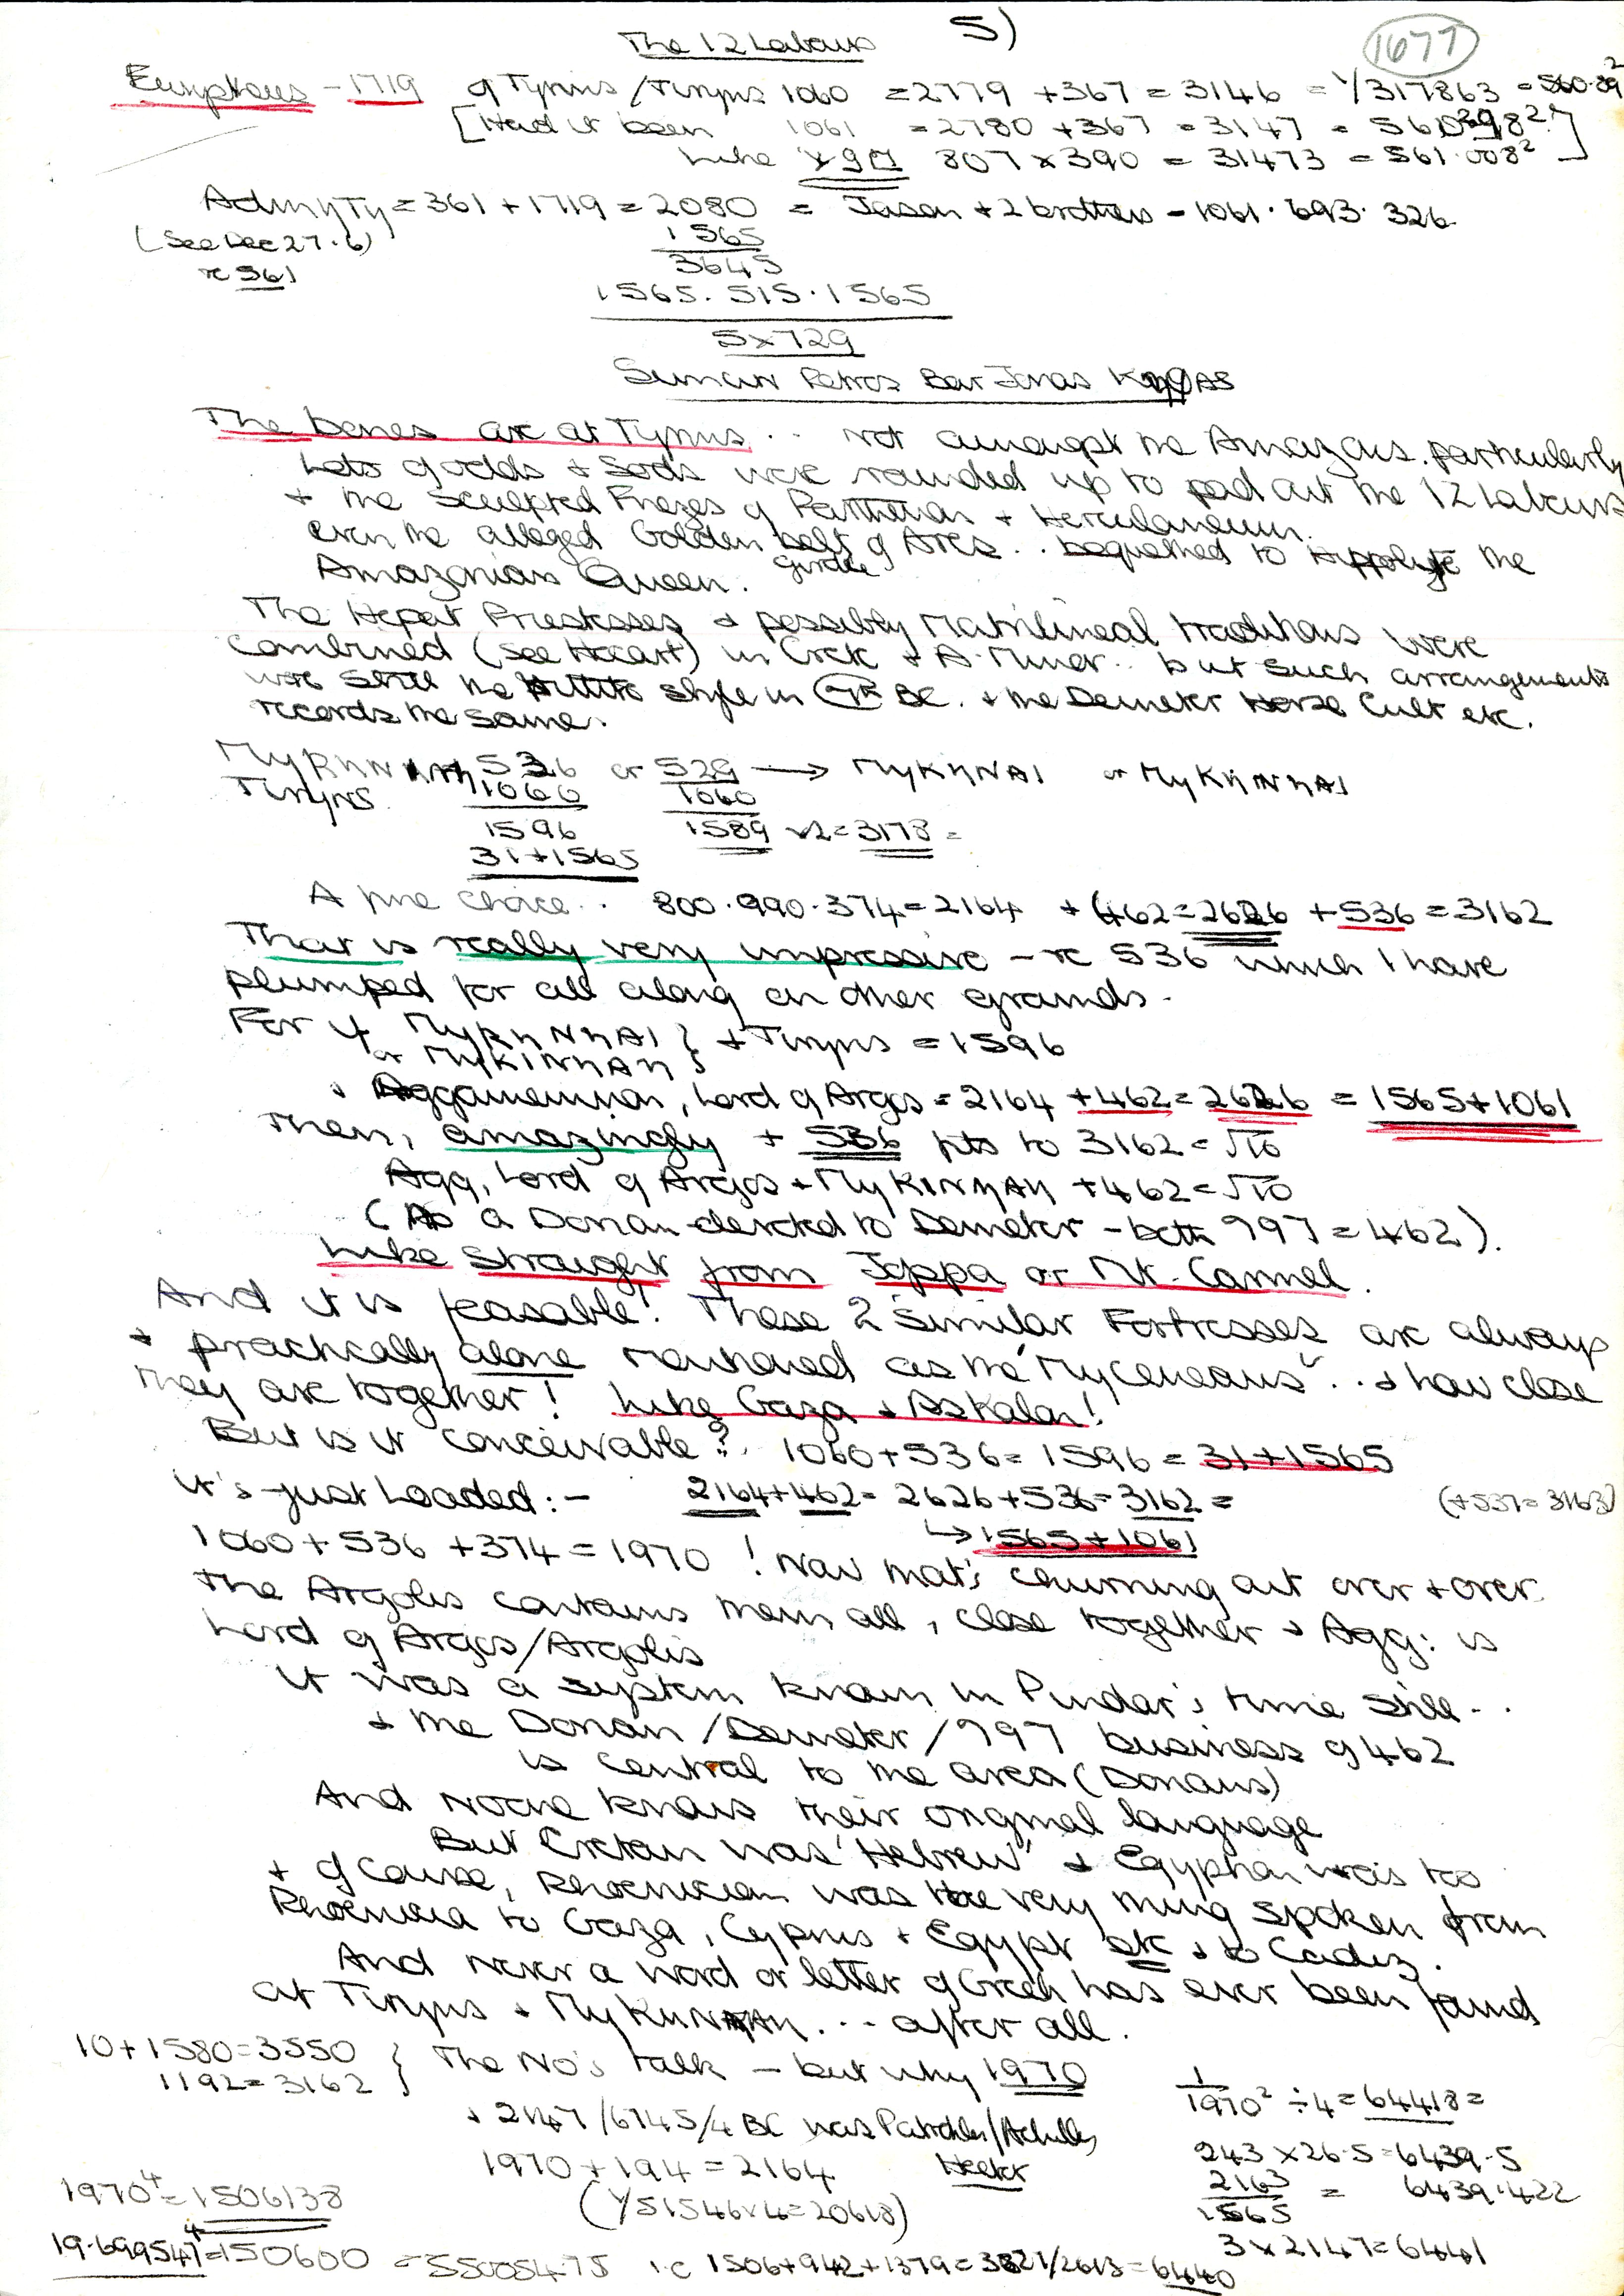 The 12 Labours 5)
1677
Eurystheus - 1719 of Tyrins / Tiryns 1060 = 2779 + 367 = 3146 = 1/317863 = 560.89²
[Had it been 1061 = 2780 + 367 = 3147 =
like 807 x 390 = 31473 = 561.008²]
= 361 + 1719 = 2080 = Jason + 2 brothers - 1061. 693. 326
(See Dec 27.6) 1565
re 561 3645
1565. 515. 1565
5x729
Simon Petros Bar Jonas
The bones are at Tyrins .. not amongst the Amazons. particularly
Lots of odds & sods were rounded up to pad out the 12 Labours
& the Sculpted Friezes of Parthenon & Herculaneum.
even the alleged Golden belt of Ares .. bequeathed to Hippolyte the
girdle
Amazonian Queen.
The Hepat Priestesses & possibly Matrilineal traditions were
combined (see Hocart) in Crete & A. Minor .. but such arrangements
were still the style in BC. & the Demeter Horse Cult etc.
records the same.
536 or 529 → MyKηNAI or MyKηINηAI
Tiryns 1060 1060
1596 1589 x2 = 3178 =
31+1565
A fine choice .. 800.990.374 = 2164 + 462 = 2626 + 536 = 3162
That is really very impressive - re 536 which I have
plumped for all along on other grounds.
For if MyKηNηAI } + Tiryns = 1596
or MyKINηAη }
& Aggamemnon, Lord of Argos = 2164 + 462 = 2626 = 1565+1061
Then, amazingly + 536 pts to 3162 = √10
Agg, Lord of Argos + MyKINηAη + 462 = √10
(As a Dorian devoted to Demeter - both 797 = 462).
Like straight from Joppa or Mt. Carmel.
And it is feasable! These 2 similar Fortresses are always
& practically alone mentioned as the "Myceneans" .. & how close
they are together! Like Gaza & Askalon!
But is it conceivable? 1060+536 = 1596 = 31+1565
It's just Loaded:- 2164+462 = 2626+536 = 3162 = (+537=3163)
↳ 1565+1061
1060+536+374 = 1970! Now that's churning out over & over.
The Argolis contains them all, close together & Agg: is
Lord of Argos/Argolis
It was a system known in Pindar's time still ..
& the Dorian/Demeter/797 business of 462
is central to the area (Dorians)
And Noone knows their original language
But Cretan was "Hebrew" & Egyptian was too
& of course, Phoenician was the very thing spoken from
Phoenicia to Gaza, Cyprus & Egypt etc & to Cadiz.
And never a word or letter of Greek has ever been found
at Tiryns & ... after all.
10+1580=3550 } The No's talk - but why 1970
1192=3162
1/1970² ÷4 = 64418 =
& 2147/6745/4 BC was Patrocles/Achilles
Hector
243 x 26.5 = 6439.5
1970 + 194 = 2164
2163/1565 = 6439.422
(1/51546x4=20618)
1970⁴ = 1506138
3 x 2147 = 6441
19.699547⁴ = 150600 = 55005475 i.e 1506+942+1379=3827/2613=6440